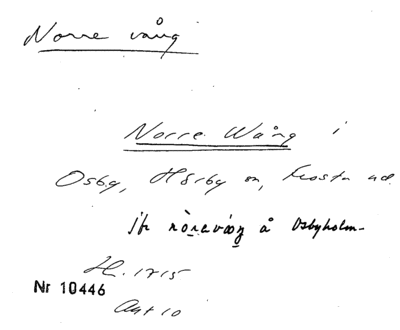 Norre vång
Norre Wång i
Osby, Hörby sn, Frosta hd.
jfr nòrəváŋ å Osbyholm
H. 1715
Nr 10446
Akt 10